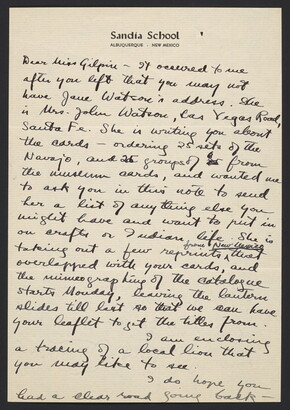 Sandia School
ALBUQUERQUE · NEW MEXICO
Dear Miss Gilpin – It occured to me
after you left that you may not
have Jane Watson's address. She
is Mrs. John Watson, Las Vegas Road,
Santa Fe. She is writing you about
the cards – ordering 25 sets of the
Navajo, and groups of from
the museum cards, and wanted me
to ask you in this note to send
her a list of anything else you
might have and want to put in
on crafts or Indian life. She is
taking out a few reprints, from New Mexico that
overlapped with your cards, and
the mimeographing of the catalogue
starts Monday, leaving the lantern
slides till last so that we can have
your leaflit to get the titles from.
I am enclosing
a tracing of a local lion that
you may like to see.
I do hope you
had a clear road going back –